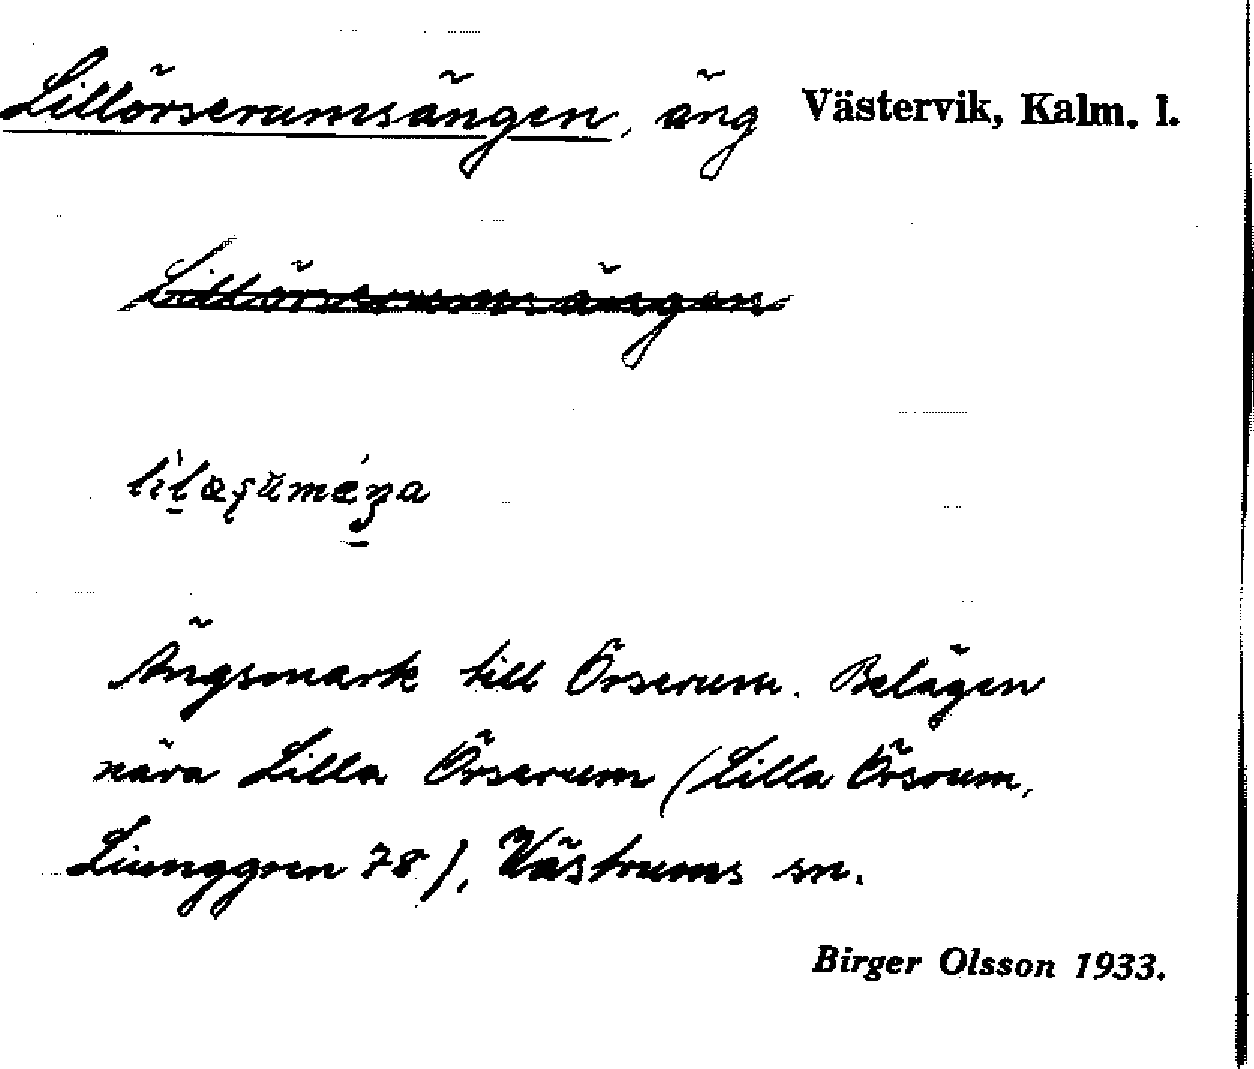 Lillörserumsängen, äng Västervik, Kalm. l.
Lillörserumsängen
Ängsmark till Örserum. Belägen
nära Lilla Örserum (Lilla Örsrum,
Liunggren 78), Västrums sn.
Birger Olsson 1933.